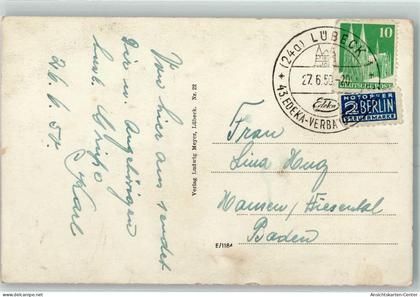 Von hier aus sendet
Dir u. Angehörigen
herzl. Grüße
Karl
27.6.50.
Verlag Ludwig Meyer, Lübeck. Nr. 22
E/1184
(24a) LÜBECK 1
27.6.50.-20
43. EDEKA-VERBA
Edeka
10
DEUTSCHE POST
NOTOPFER
2 BERLIN
STEUERMARKE
Frau
Lina Hug
Hausen / Wiesental
Baden